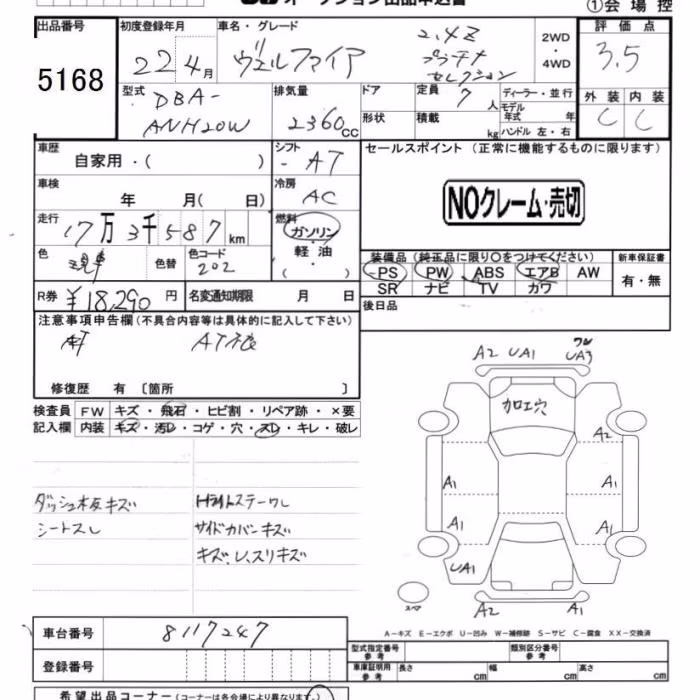 ①会場控
出品番号 5168
初度登録年月 22 4月
車名・グレード ヴェルファイア 2.4Z プラチナ セレクション
2WD・4WD
評価点 3.5
外装 C 内装 C
型式 DBA-ANH20W
排気量 2360cc
ドア
形状
定員 7人
積載 kg
ディーラー・並行
モデル年式 年
ハンドル 左・右
車歴 自家用・( )
シフト AT
セールスポイント(正常に機能するものに限ります)
NOクレーム・売切
車検 年 月( 日)
冷房 AC
走行 17万3千587km
燃料 ガソリン・軽油・( )
色 色替
色コード 202
装備品(純正品に限り〇をつけてください)
PS PW ABS エアB AW
SR ナビ TV カワ
新車保証書 有・無
R券 ¥18,290円
名変通知期限 月 日
後日品
注意事項申告欄(不具合内容等は具体的に記入して下さい)
修復歴 有〔箇所 〕
検査員 FW キズ・飛石・ヒビ割・リペア跡・×要
記入欄 内装 キズ・汚レ・コゲ・穴・スレ・キレ・破レ
A2 UA1 UA3
加工穴
A2
A1 A1
A1 A1
UA1
A2 A1
スペア
ダッシュ木板キズ
シートスレ
サイドカバンキズ
キズ、レ、スリキズ
A-キズ E-エクボ U-凹み W-補修跡 S-サビ C-腐食 XX-交換済
車台番号 8117247
登録番号
型式指定番号 参考
類別区分番号 参考
車庫証明用 参考 長さ cm 幅 cm 高さ cm
希望出品コーナー(コーナーは各会場により異なります。)